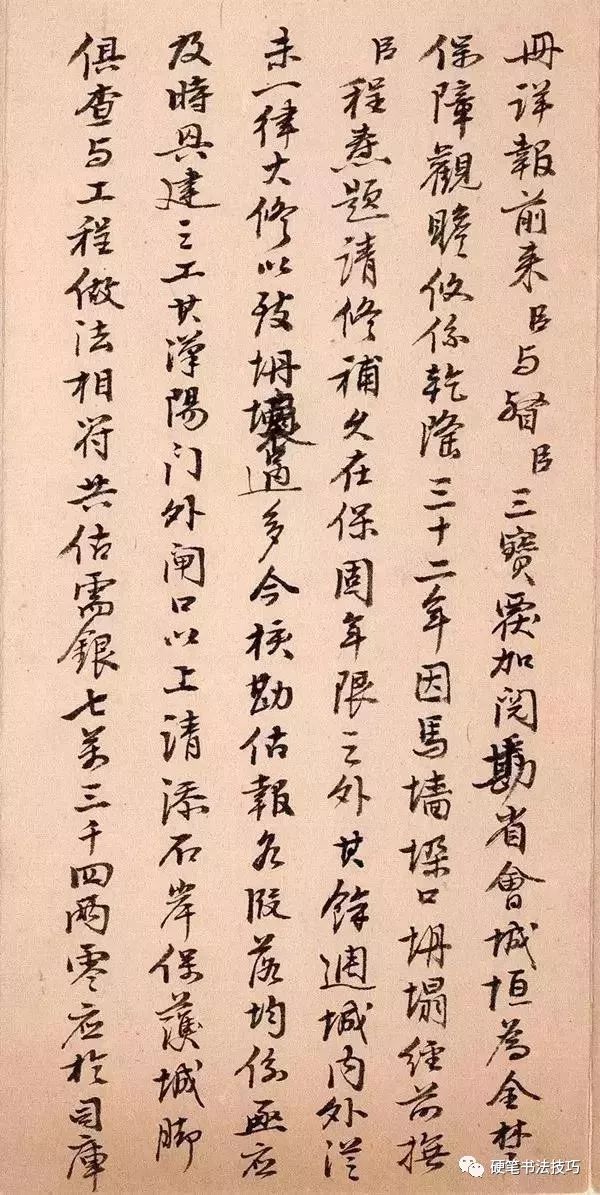 冊詳報前来臣与督臣三寶覆加閱勘省會城垣為全楚
保障觀瞻攸係乾隆三十二年因馬墻垛口坍塌經前撫
臣程燾題請修補久在保固年限之外其餘週城内外從
未一律大修以致坍壞過多今核勘估報各段落均係亟应
及時興建之工其漢陽门外閘口以上請添石岸保護城脚
俱查与工程做法相符共估需銀七萬三千四兩零应於司庫
硬笔书法技巧